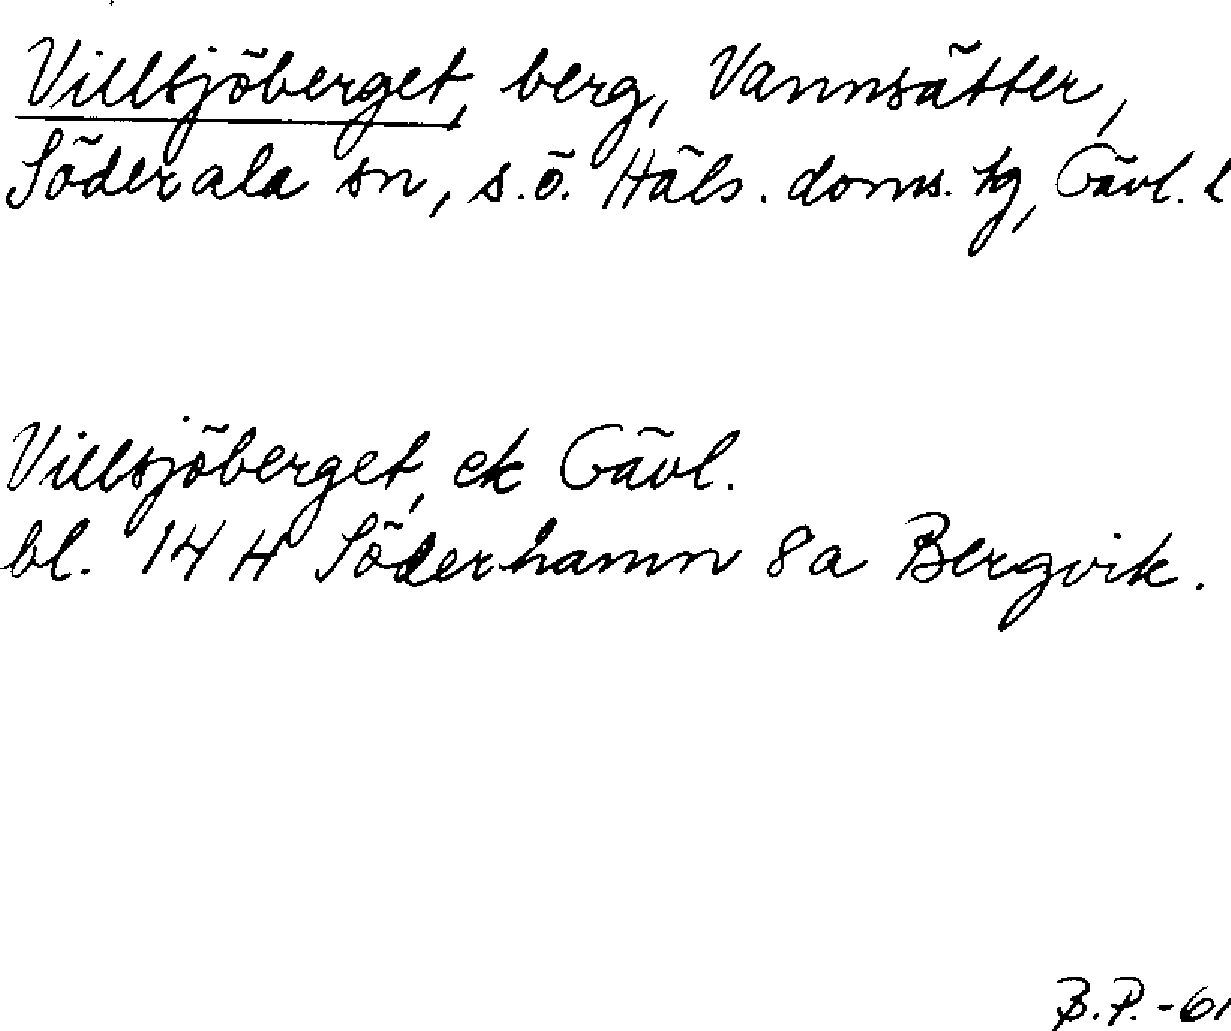 Villsjöberget, berg, Vannsätter,
Söderala sn, s.ö. Häls. doms. tg, Gävl. l
Villsjöberget, ek Gävl.
bl. 14 H Söderhamn 8a Bergvik.
B.P. -61